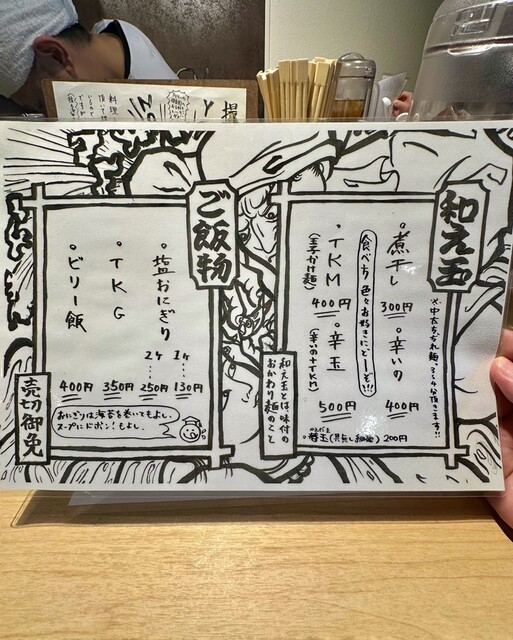 和え玉
※中太ちぢれ麺。3〜4分頂きます!!
・煮干し
300円
・辛いの
400円
食べ方 色々お好きにどーぞ!!
・TKM
(玉子かけ麺)
400円
・辛玉
(辛いの+TKM)
500円
・替玉(具無し和油)200円
和え玉とは味付の
おかわり麺のこと
ご飯物
・塩おにぎり
1ケ…130円
2ケ…250円
・TKG
350円
・ビリー飯
400円
おにぎりは海苔を巻いてもよし。
スープにドボン!もよし。
売切御免